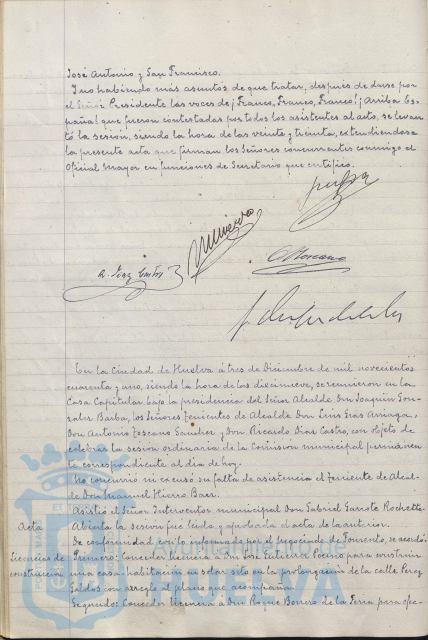 José Antonio y San Francisco.
Y no habiendo más asuntos de que tratar, despues de darse por
el Señor Presidente las voces de ¡Franco, Franco, Franco! ¡Arriba Es-
paña! que fueron contestadas por todos los asistentes al acto, se levan
tó la sesión, siendo la hora de las veinte y treinta, extendiendose
la presente acta que firman los Señores concurrentes conmigo el
Oficial Mayor en funciones de Secretario que certifico.
En la Ciudad de Huelva á tres de Diciembre de mil novecientos
cuarenta y uno, siendo la hora de las diecinueve, se reunieron en la
Casa Capitular bajo la presidencia del Señor Alcalde Don Joaquin Gon-
zalez Barba, los Señores Tenientes de Alcalde Don Luis Gras Arriaga,
Don Antonio Toscano Sanchez y Don Ricardo Diaz Castro, con objeto de
celebrar la sesión ordinaria de la Comisión municipal permanen
te correspondiente al dia de hoy.
No concurrió ni excusó su falta de asistencia el Teniente de Alcal-
de Don Manuel Hierro Baez.
Asistió el Señor Interventor municipal Don Gabriel Garrote Rochette.
Acta Abierta la sesión fué leida y aprobada el acta de la anterior.
De conformidad con lo informado por el Negociado de Fomento, se acordó:
Licencias de Primero: Conceder licencia a Don José Gutierrez Pocino para construir
construcción una casa-habitación en solar sito en la prolongación de la calle Perez
Galdos con arreglo al plano que acompaña.
Segundo: Conceder licencia a Don Roque Borrero de la Feria para efec-
HUELVA